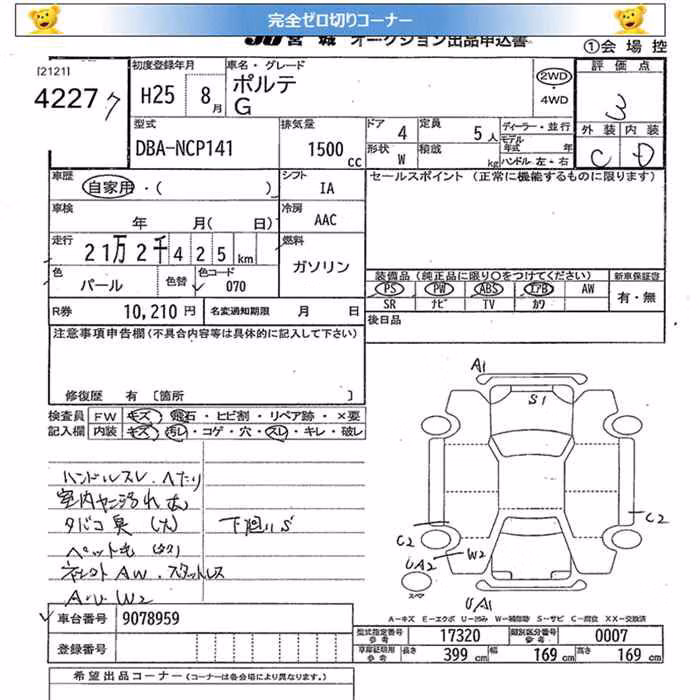 完全ゼロ切りコーナー
JU 宮城 オークション出品申込書
①会場控
[2121]
4227
初度登録年月 車名・グレード
H25 8月 ポルテ
G
2WD
・
4WD
評価点
3
外装 内装
C D
型式 排気量 ドア 4 定員 5人 ディーラー・並行
DBA-NCP141 1500cc 形状 W 積載 kg モデル年式 年
ハンドル 左・右
車歴 シフト セールスポイント (正常に機能するものに限ります)
自家用・( ) IA
車検 冷房
年 月( 日) AAC
走行 燃料
21万2千425km ガソリン
色 色替 色コード
パール 070
装備品(純正品に限り○をつけてください) 新車保証書
PS PW ABS エアB AW 有・無
SR ナビ TV カワ
R券 10,210円 名変通知期限 月 日
後日品
注意事項申告欄(不具合内容等は具体的に記入して下さい)
修復歴 有 [箇所 ]
検査員 FW キズ・飛石・ヒビ割・リペア跡・×要
記入欄 内装 キズ・汚レ・コゲ・穴・スレ・キレ・破レ
ハンドルスレ.ヘたり
室内ヤニ汚れ大
タバコ臭(大) 下廻りS
ペット毛
AW.スタットレス
W2
A1
S1
C2
C2
W2
UA2
スペア
UA1
A－キズ E－エクボ U－凹み W－補修跡 S－サビ C－腐食 XX－交換済
車台番号 9078959
登録番号
型式指定番号参考 17320 類別区分番号 0007
車庫証明用参考 長さ 399cm 幅 169cm 高さ 169cm
希望出品コーナー(コーナーは各会場により異なります。)